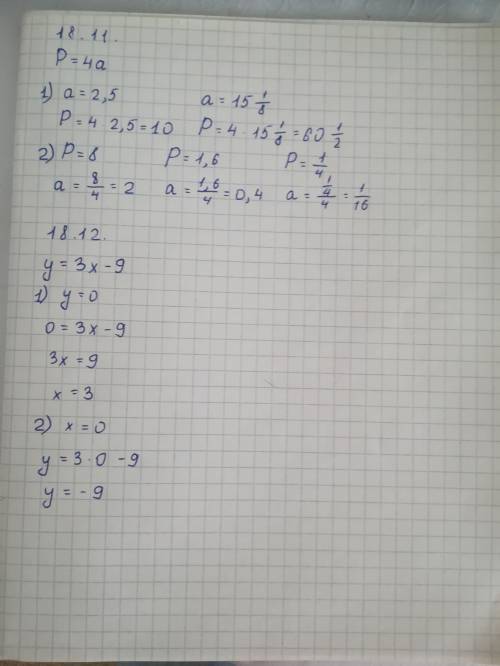 18.11.
P = 4a
1) a = 2,5 a = 15 1/8
P = 4 · 2,5 = 10 P = 4 · 15 1/8 = 60 1/2
2) P = 8 P = 1,6 P = 1/4
a = 8/4 = 2 a = 1,6/4 = 0,4 a = (1/4)/4 = 1/16
18.12.
y = 3x - 9
1) y = 0
0 = 3x - 9
3x = 9
x = 3
2) x = 0
y = 3 · 0 - 9
y = - 9